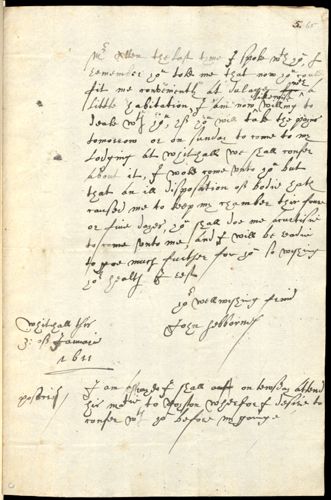 5. 65
Mr Allen the last time I spok wth yow, I
remember yow told me that now yow could
fit me conveniently at Dulwich wth a
litle habitation, I am now willing to
deale wth yow, if yow will take the paynes
tomorrow or on sunday to come to my
Lodging at whithall we shall confer
about it, I wold come unto yow but
that an ill disposition of bodie hath
caused me to keep my chamber this foure
or five dayes yow shall doe me a curtisie
to come unto me and I will be readie
to doe much further for yow so wishing
yow health I rest
yor wellwishing frind
John
Whithall this
3: of Januarie
1621
postscript
I am I shall on tewsday attend
his matie to wherfor I desire to
confer wth yow before my going